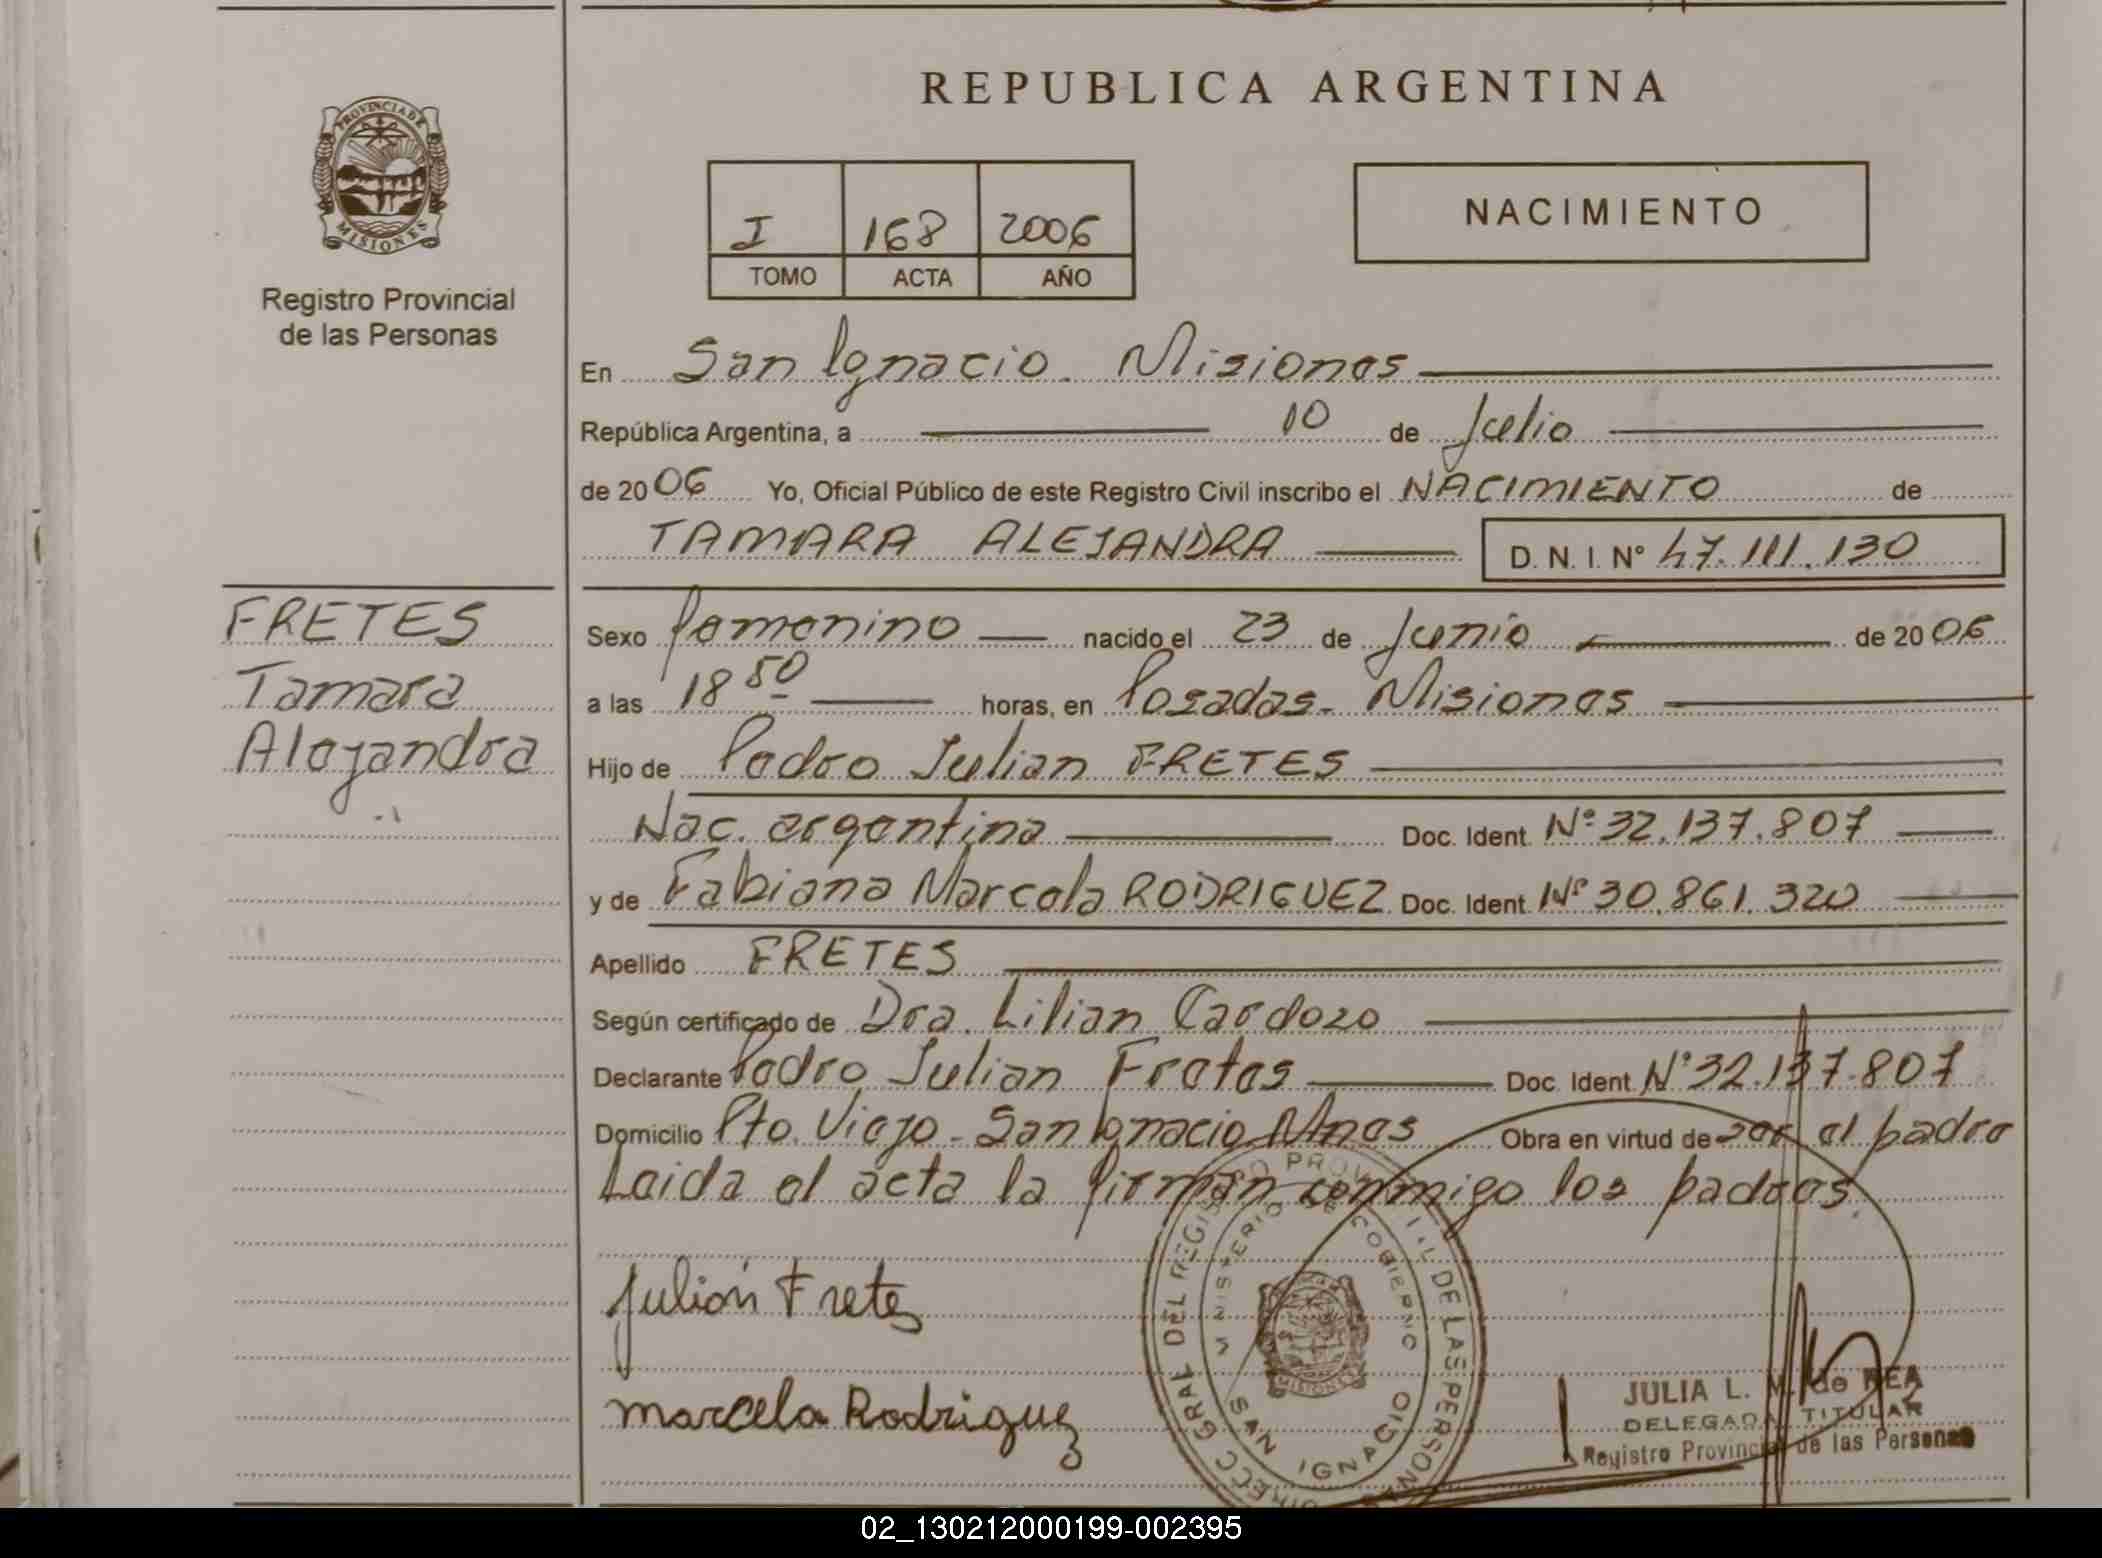 REPUBLICA ARGENTINA
PROVINCIA DE
MISIONES
Registro Provincial
de las Personas
I 168 2006
TOMO ACTA AÑO
NACIMIENTO
En San Ignacio. Misiones
República Argentina, a 10 de Julio
de 2006 Yo, Oficial Público de este Registro Civil inscribo el NACIMIENTO de
TAMARA ALEJANDRA D. N. I. N° 47.111.130
FRETES
Tamara
Alejandra
Sexo femenino nacido el 23 de Junio de 2006
a las 18 50 horas, en Posadas- Misiones
Hijo de Pedro Julian FRETES
Nac. argentina Doc. Ident. N° 32.137.807
y de Fabiana Marcela RODRIGUEZ Doc. Ident. N° 30.861.320
Apellido FRETES
Según certificado de Dra. Lilian Cardozo
Declarante Pedro Julian Fretes Doc. Ident. N° 32.137.807
Domicilio Pto. Viejo - San Ignacio Mnes Obra en virtud de ser el padre
Leida el acta la firman conmigo los padres.
Julián Fretes
marcela Rodriguez
DIRECC GRAL DEL REGISTRO PROVINCIAL DE LAS PERSONAS
MINISTERIO DE GOBIERNO
MISIONES
SAN IGNACIO
JULIA L. M. de REA
DELEGADA TITULAR
Registro Provincial de las Personas
02_130212000199-002395